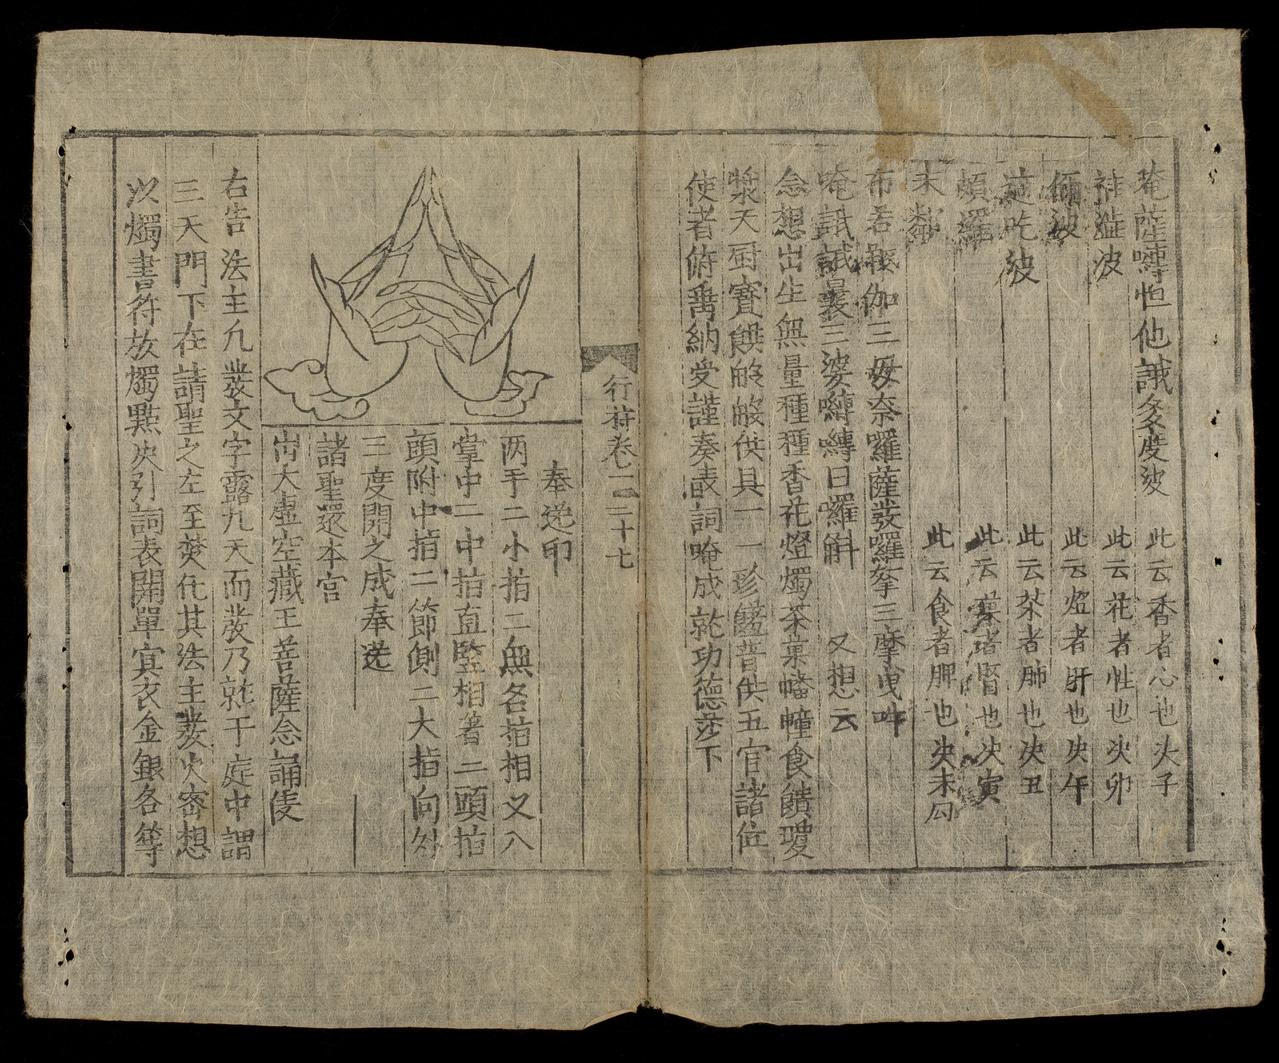 唵薩嚩怛他誐多度波 此云香者心也决子
補澁波 此云花者性也决卯
波 此云燈者肝也决午
巘吃波 此云茶者肺也决丑
頗羅 此云菓者腎也决寅
末鄰 此云食者脾也决未勾
布君拔伽三毋奈羅薩發羅拏三摩曳吽
唵誐誐曩三婆嚩嚩日囉斛 又想云
念想出生無量種種香花燈燭茶菓幡幢食饋瓊
漿天厨寳饌餚饍供具一一珍饈普供五官諸位
使者俯垂納受謹奏表詞唵成就功德莎下
行符卷一 二十七
奉送印
两手二小指二無名指相叉入
掌中二中指直竪相著二頭指
頭附中指二節側二大指向外
三度開之成奉送
諸聖還本宫
啇大虚空藏王菩薩念誦儀
右告法主凡發文字露九天而發乃就于庭中謂
三天門下在請聖之左至焚化其法主發火密想
以燭書符放燭㸃决引詞表開單冥衣金銀各等